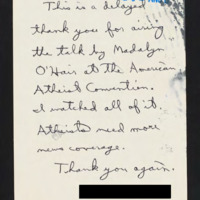 This is a delayed
thank you for airing
the talk by Madalyn
O'Hair at the American
Atheist Convention.
I watched all of it.
Atheists need more
news coverage.
Thank you again.